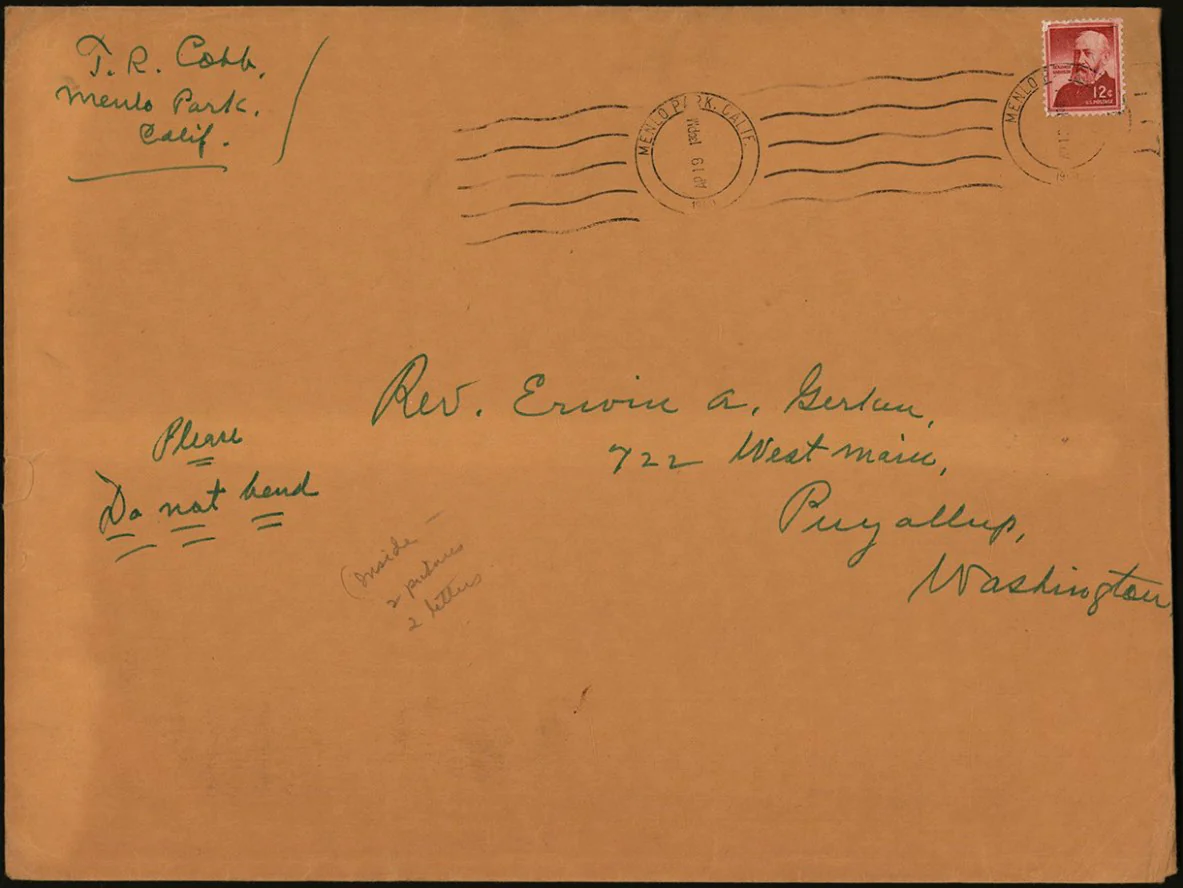 T. R. Cobb.
Menlo Park.
Calif.
MENLO PARK, CALIF.
MENLO
BENJAMIN HARRISON
12¢
U.S. POSTAGE
Rev. Erwin A. Gerken,
722 West Main,
Puyallup,
Washington
Please
Do not bend
(Inside –
2 pictures
2 letters